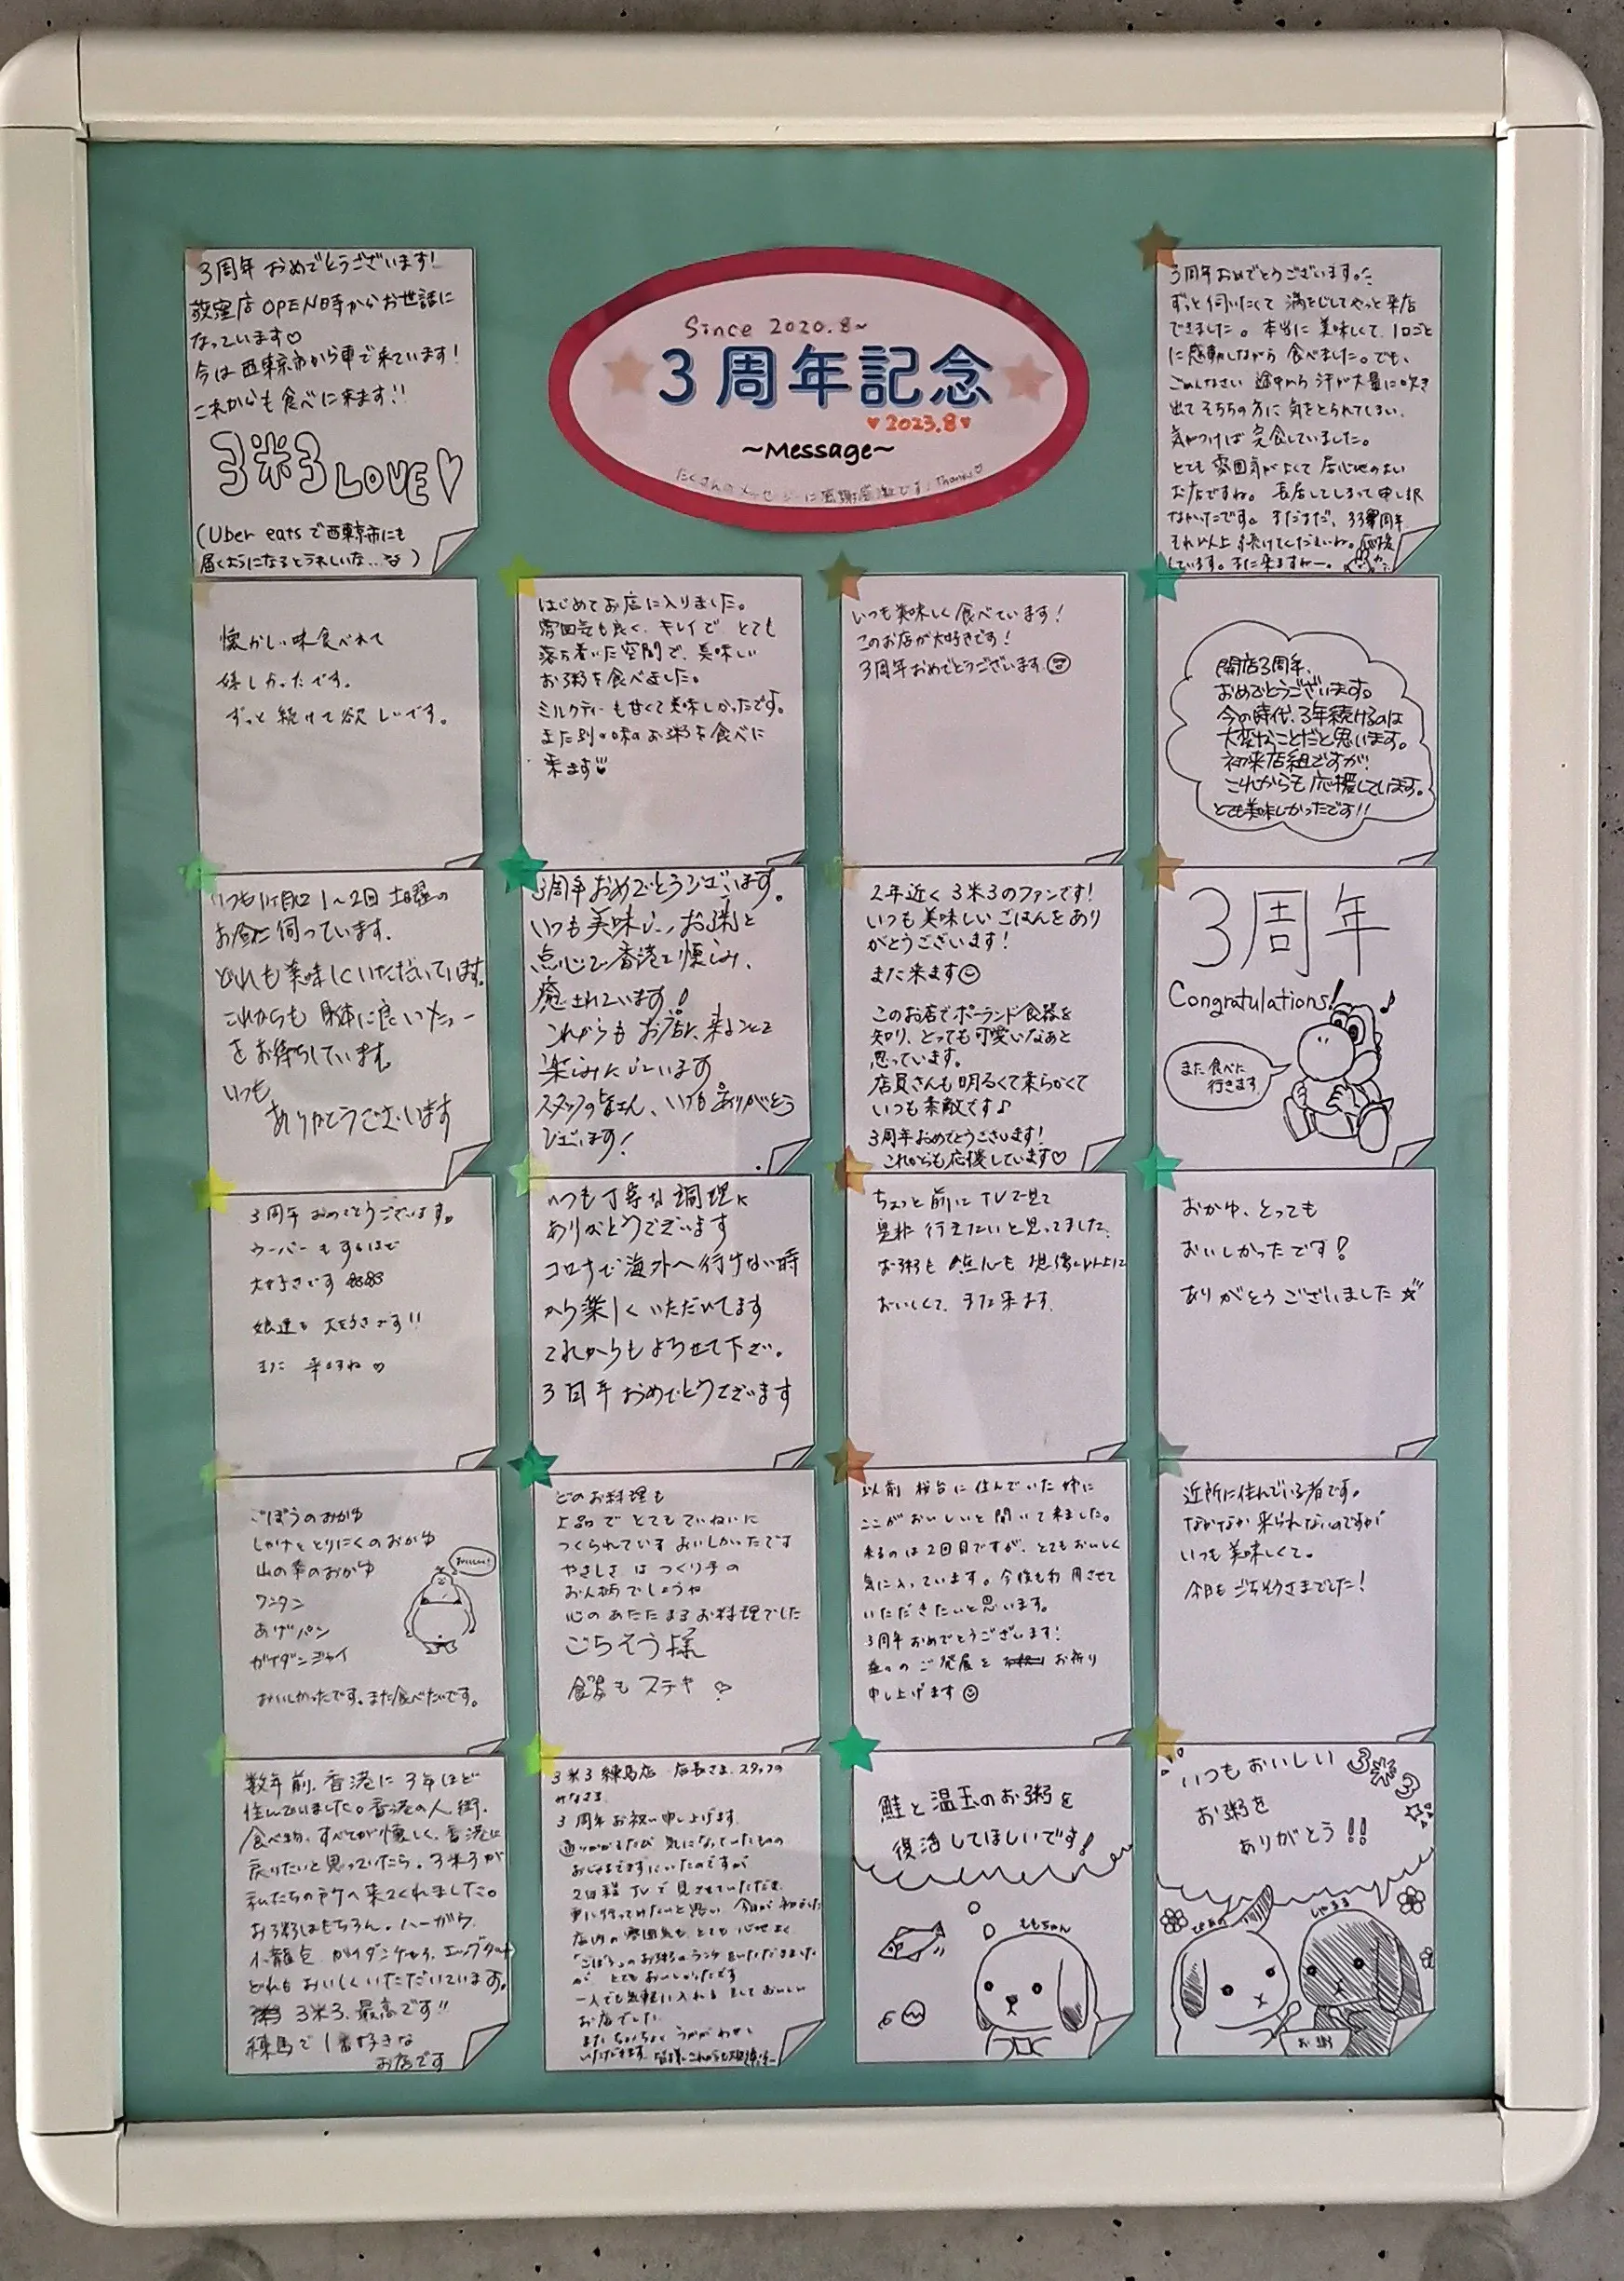 3周年おめでとうございます!
荻窪店OPEN時からお世話に
なっています♡
今は西東京市から車で来ています!
これからも食べに来ます!!
3米3 LOVE♡
(Uber eatsで西東京市にも
届くようになるとうれしいな…)
Since 2020.8~
3周年記念
♥2023.8♥
~Message~
たくさんのメッセージに感謝感激です! Thanks♡
3周年おめでとうございます。
ずっと伺いたくて 満をじしてやっと来店
できました。本当に美味しくて、1口ごと
に感動しながら食べました。でも、
ごめんなさい 途中から汗が大量に吹き
出てそちらの方に気をとられてしまい、
気がつけば完食していました。
とても雰囲気がよくて居心地のよい
お店ですね。長居してしまって申し訳
なかったです。まだまだ、33周年
それ以上続けてくださいね。応援
しています。また来ますねー。
懐かしい味食べれて
嬉しかったです。
ずっと続けて欲しいです。
はじめてお店に入りました。
雰囲気も良く、キレイで とても
落ち着いた空間で、美味しい
お粥を食べました。
ミルクティーも甘くて美味しかったです。
また別の味のお粥を食べに
来ます
いつも美味しく食べています!
このお店が大好きです!
3周年おめでとうございます。
開店3周年、
おめでとうございます。
今の時代、3年続けるのは
大変なことだと思います。
初来店組ですが!
これからも応援しています。
とても美味しかったです!!
いつも1ヶ月に1~2回 土曜の
お昼に伺っています。
どれも美味しくいただいています。
これからも身体に良いメニュー
をお待ちしています。
いつも
ありがとうございます
3周年おめでとうございます。
いつも美味しいお粥と
点心で香港を懐しみ、
癒されています!
これからもお店に来ることを
楽しみにしています
スタッフの皆さん、いつもありがとう
ございます!
2年近く3米3のファンです!
いつも美味しいごはんをあり
がとうございます!
また来ます☺
このお店でポーランド食器を
知り、とっても可愛いなぁと
思っています。
店員さんも明るくて柔らかくて
いつも素敵です♪
3周年おめでとうございます!
これからも応援しています♡
3周年
Congratulations! ♪
また食べに
行きます
3周年おめでとうございます。
ウーバーもするほど
大好きです
娘達も大好きです!!
また来ますね♡
いつも丁寧な調理に
ありがとうございます
コロナで海外へ行けない時
から楽しくいただいてます
これからもよらせて下さい。
3周年おめでとうございます
ちょっと前にTVで見て
是非行きたいと思ってました。
お粥も点心も想像以上に
おいしくて、また来ます。
おかゆ、とっても
おいしかったです!
ありがとうございました☆
ごぼうのおかゆ
しゃけととりにくのおかゆ
山の幸のおかゆ
ワンタン
あげパン
ガイダンジャイ
おいしかったです。また食べたいです。
どのお料理も
上品で とてもていねいに
つくられています おいしかったです
やさしさは つくり手の
お人柄でしょうね
心のあたたまるお料理でした
ごちそう様
食器もステキ ♡
以前 桜台に住んでいた姉に
ここがおいしいと聞いて来ました。
来るのは2回目ですが、とてもおいしく
気に入っています。今後も利用させて
いただきたいと思います。
3周年おめでとうございます!
益々のご発展を お祈り
申し上げます☺
近所に住んでいる者です。
なかなか来られないのですが
いつも美味しくて。
今日もごちそうさまでした!
数年前、香港に3年ほど
住んでいました。香港の人、街、
食べ物、すべてが懐しく、香港に
戻りたいと思っていたら、3米3が
私たちの街へ来てくれました。
お粥はもちろん、ハーガウ、
小龍包、ガイダンチャイ、エッグタルト
どれもおいしくいただいています。
3米3、最高です!!
練馬で1番好きな
お店です
3米3練馬店 店長さま、スタッフの
みなさま
3周年お祝い申し上げます。
通りがかるたび 気になっていたものの
2回程TVで見させていただき、
更に行ってみたいと思い、今日が初めてでした
店内の雰囲気も、とても心地よく
「ごぼう」のお粥のランチをいただきました
が とてもおいしかったです
一人でも気軽に入れる そしておいしい
お店でした。
またちょくちょく うかがわせて
いただきます。
鮭と温玉のお粥を
復活してほしいです!
ももちゃん
いつもおいしい 3米3
お粥を
ありがとう!!
お粥